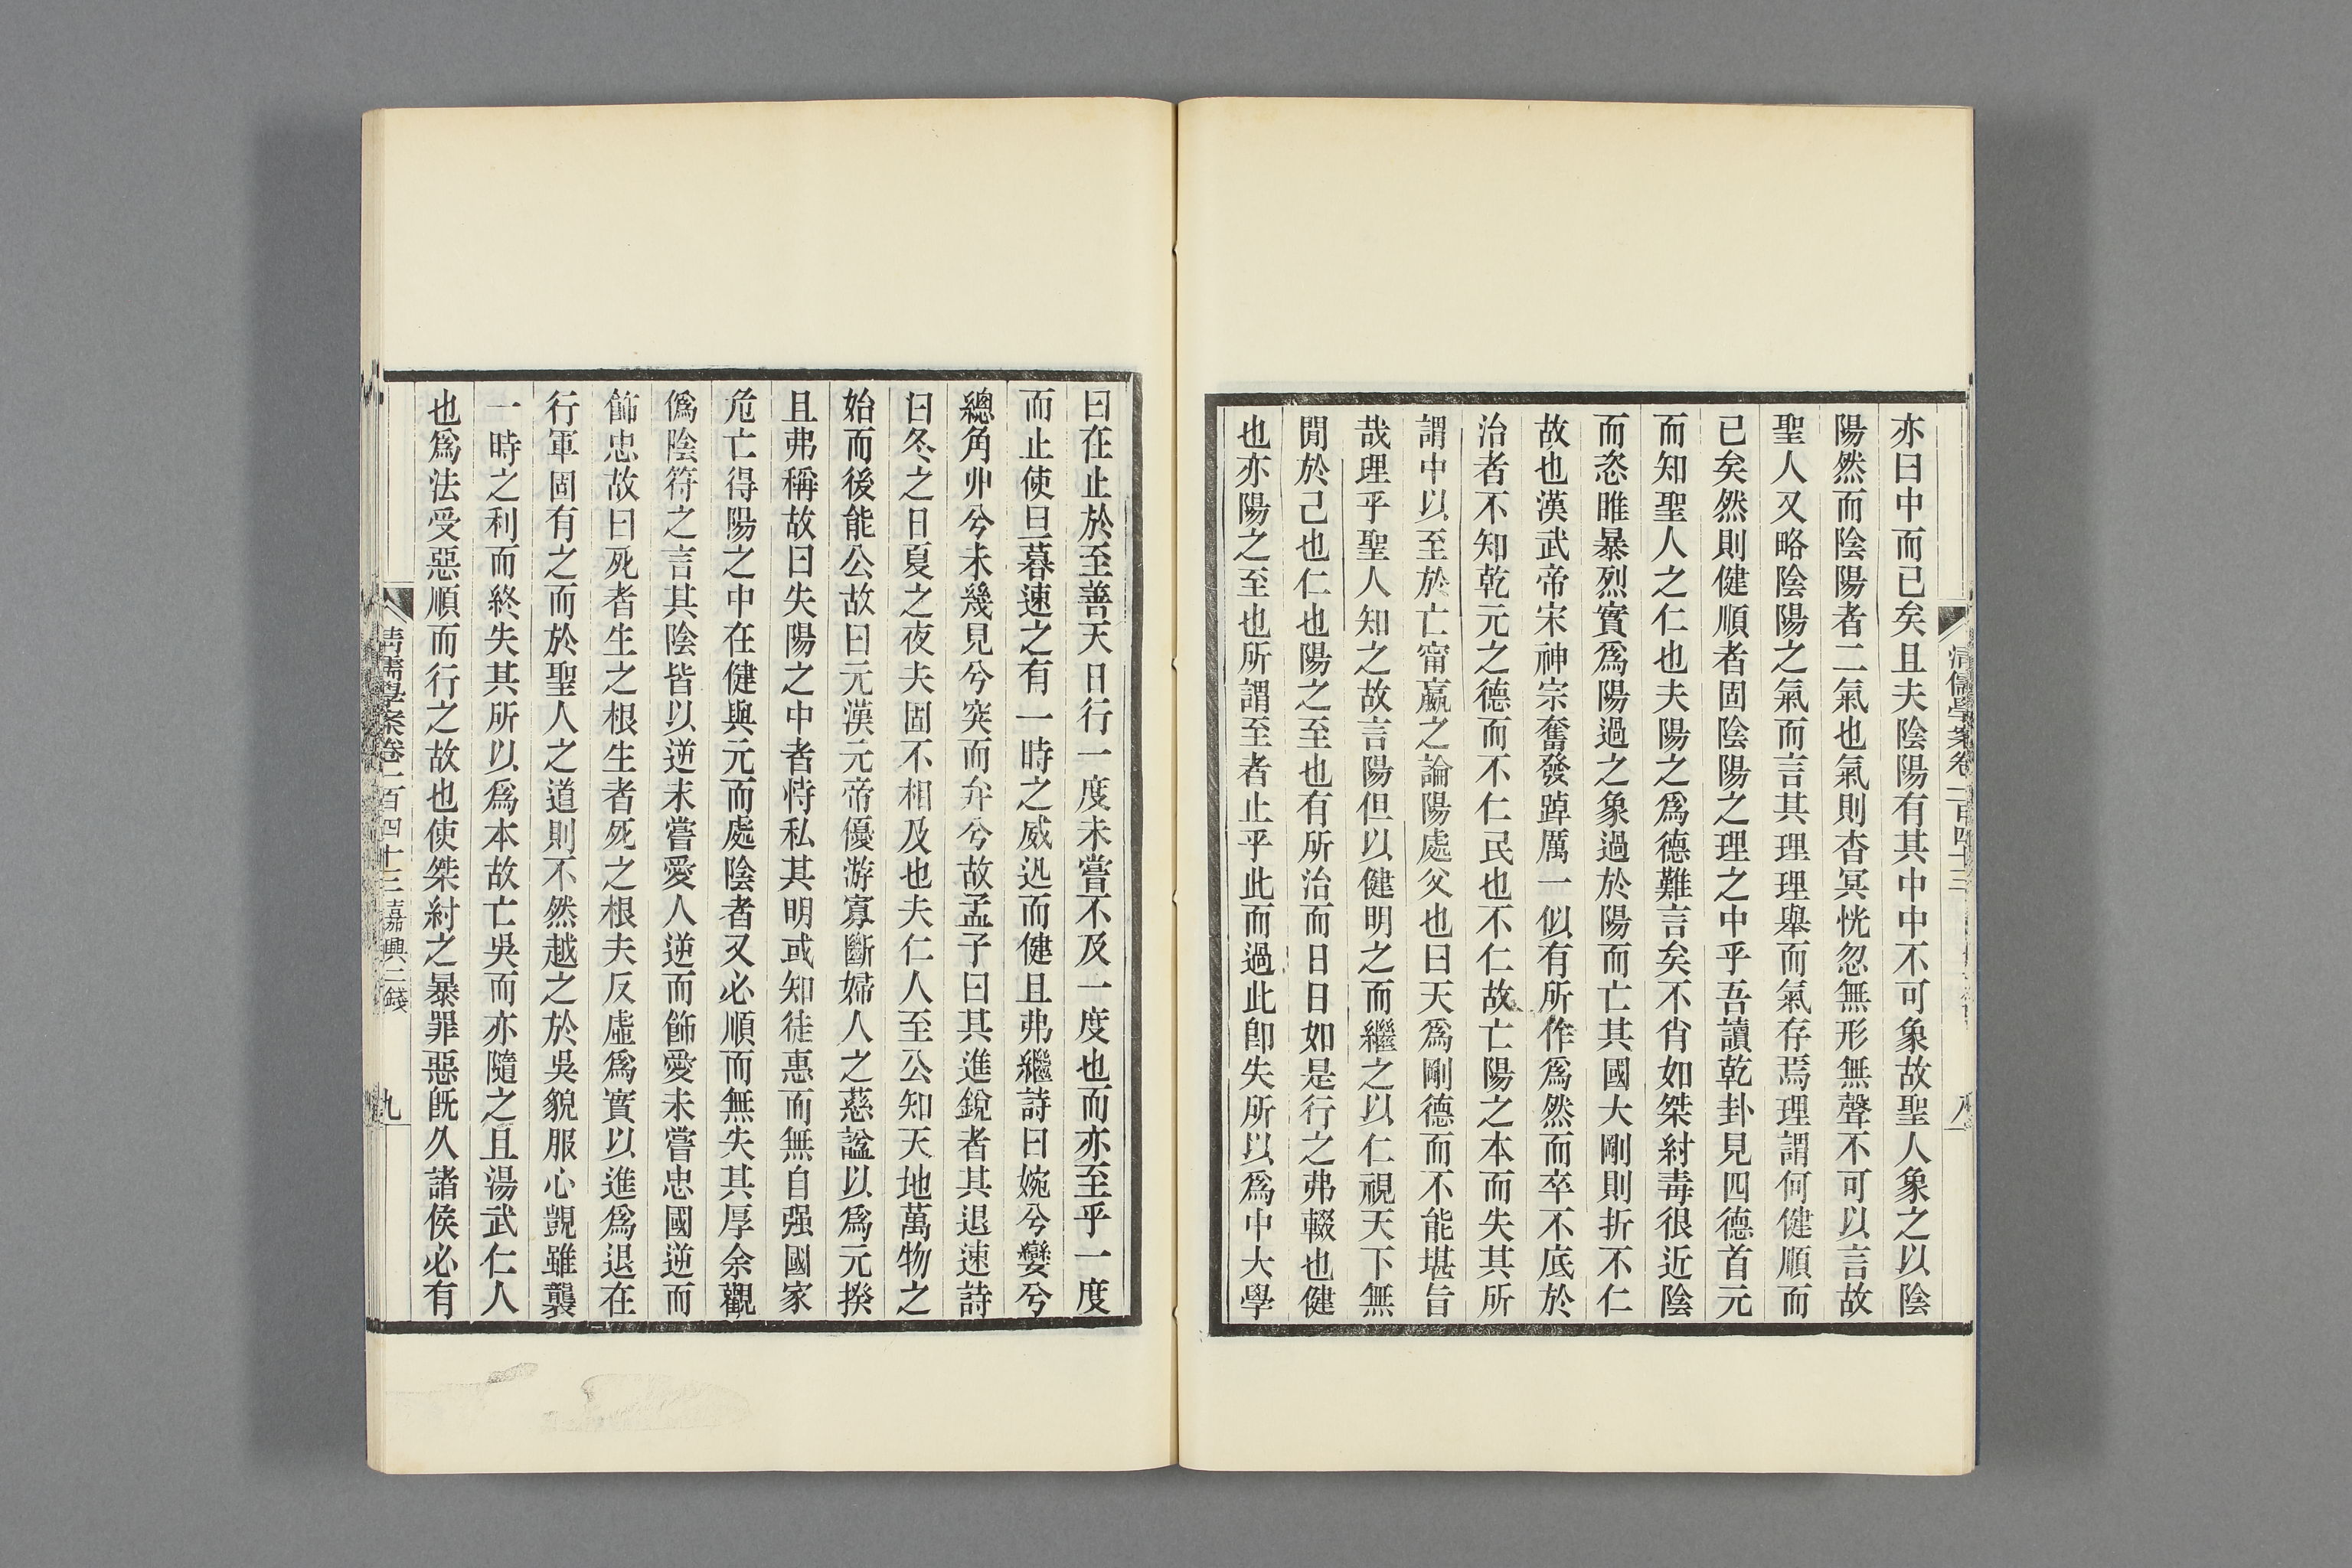 亦曰中而已矣且夫陰陽有其中中不可象故聖人象之以陰
陽然而陰陽者二氣也氣則杳冥恍忽無形無聲不可以言故
聖人又略陰陽之氣而言其理理舉而氣存焉理謂何健順而
已矣然則健順者固陰陽之理之中乎吾讀乾卦見四德首元
而知聖人之仁也夫陽之爲德難言矣不肖如桀紂毒很近陰
而恣睢暴烈實爲陽過之象過於陽而亡其國大剛則折不仁
故也漢武帝宋神宗奮發踔厲一似有所作爲然而卒不底於
治者不知乾元之德而不仁民也不仁故亡陽之本而失其所
謂中以至於亡甯嬴之論陽處父也曰天爲剛德而不能堪旨
哉理乎聖人知之故言陽但以健明之而繼之以仁視天下無
閒於己也仁也陽之至也有所治而日日如是行之弗輟也健
也亦陽之至也所謂至者止乎此而過此卽失所以爲中大學
曰在止於至善天日行一度未嘗不及一度也而亦至乎一度
而止使旦暮速之有一時之威迅而健且弗繼詩曰婉兮孌兮
總角丱兮未幾見兮突而弁兮故孟子曰其進銳者其退速詩
曰冬之日夏之夜夫固不相及也夫仁人至公知天地萬物之
始而後能公故曰元漢元帝優游寡斷婦人之慈諡以爲元揆
且弗稱故曰失陽之中者恃私其明或知徒惠而無自强國家
危亡得陽之中在健與元而處陰者又必順而無失其厚余觀
僞陰符之言其陰皆以逆末嘗愛人逆而飾愛未嘗忠國逆而
飾忠故曰死者生之根生者死之根夫反虛爲實以進爲退在
行軍固有之而於聖人之道則不然越之於吳貌服心覬雖襲
一時之利而終失其所以爲本故亡吳而亦隨之且湯武仁人
也爲法受惡順而行之故也使桀紂之暴罪惡旣久諸侯必有
清儒學案卷二百四十三 嘉興二錢
九